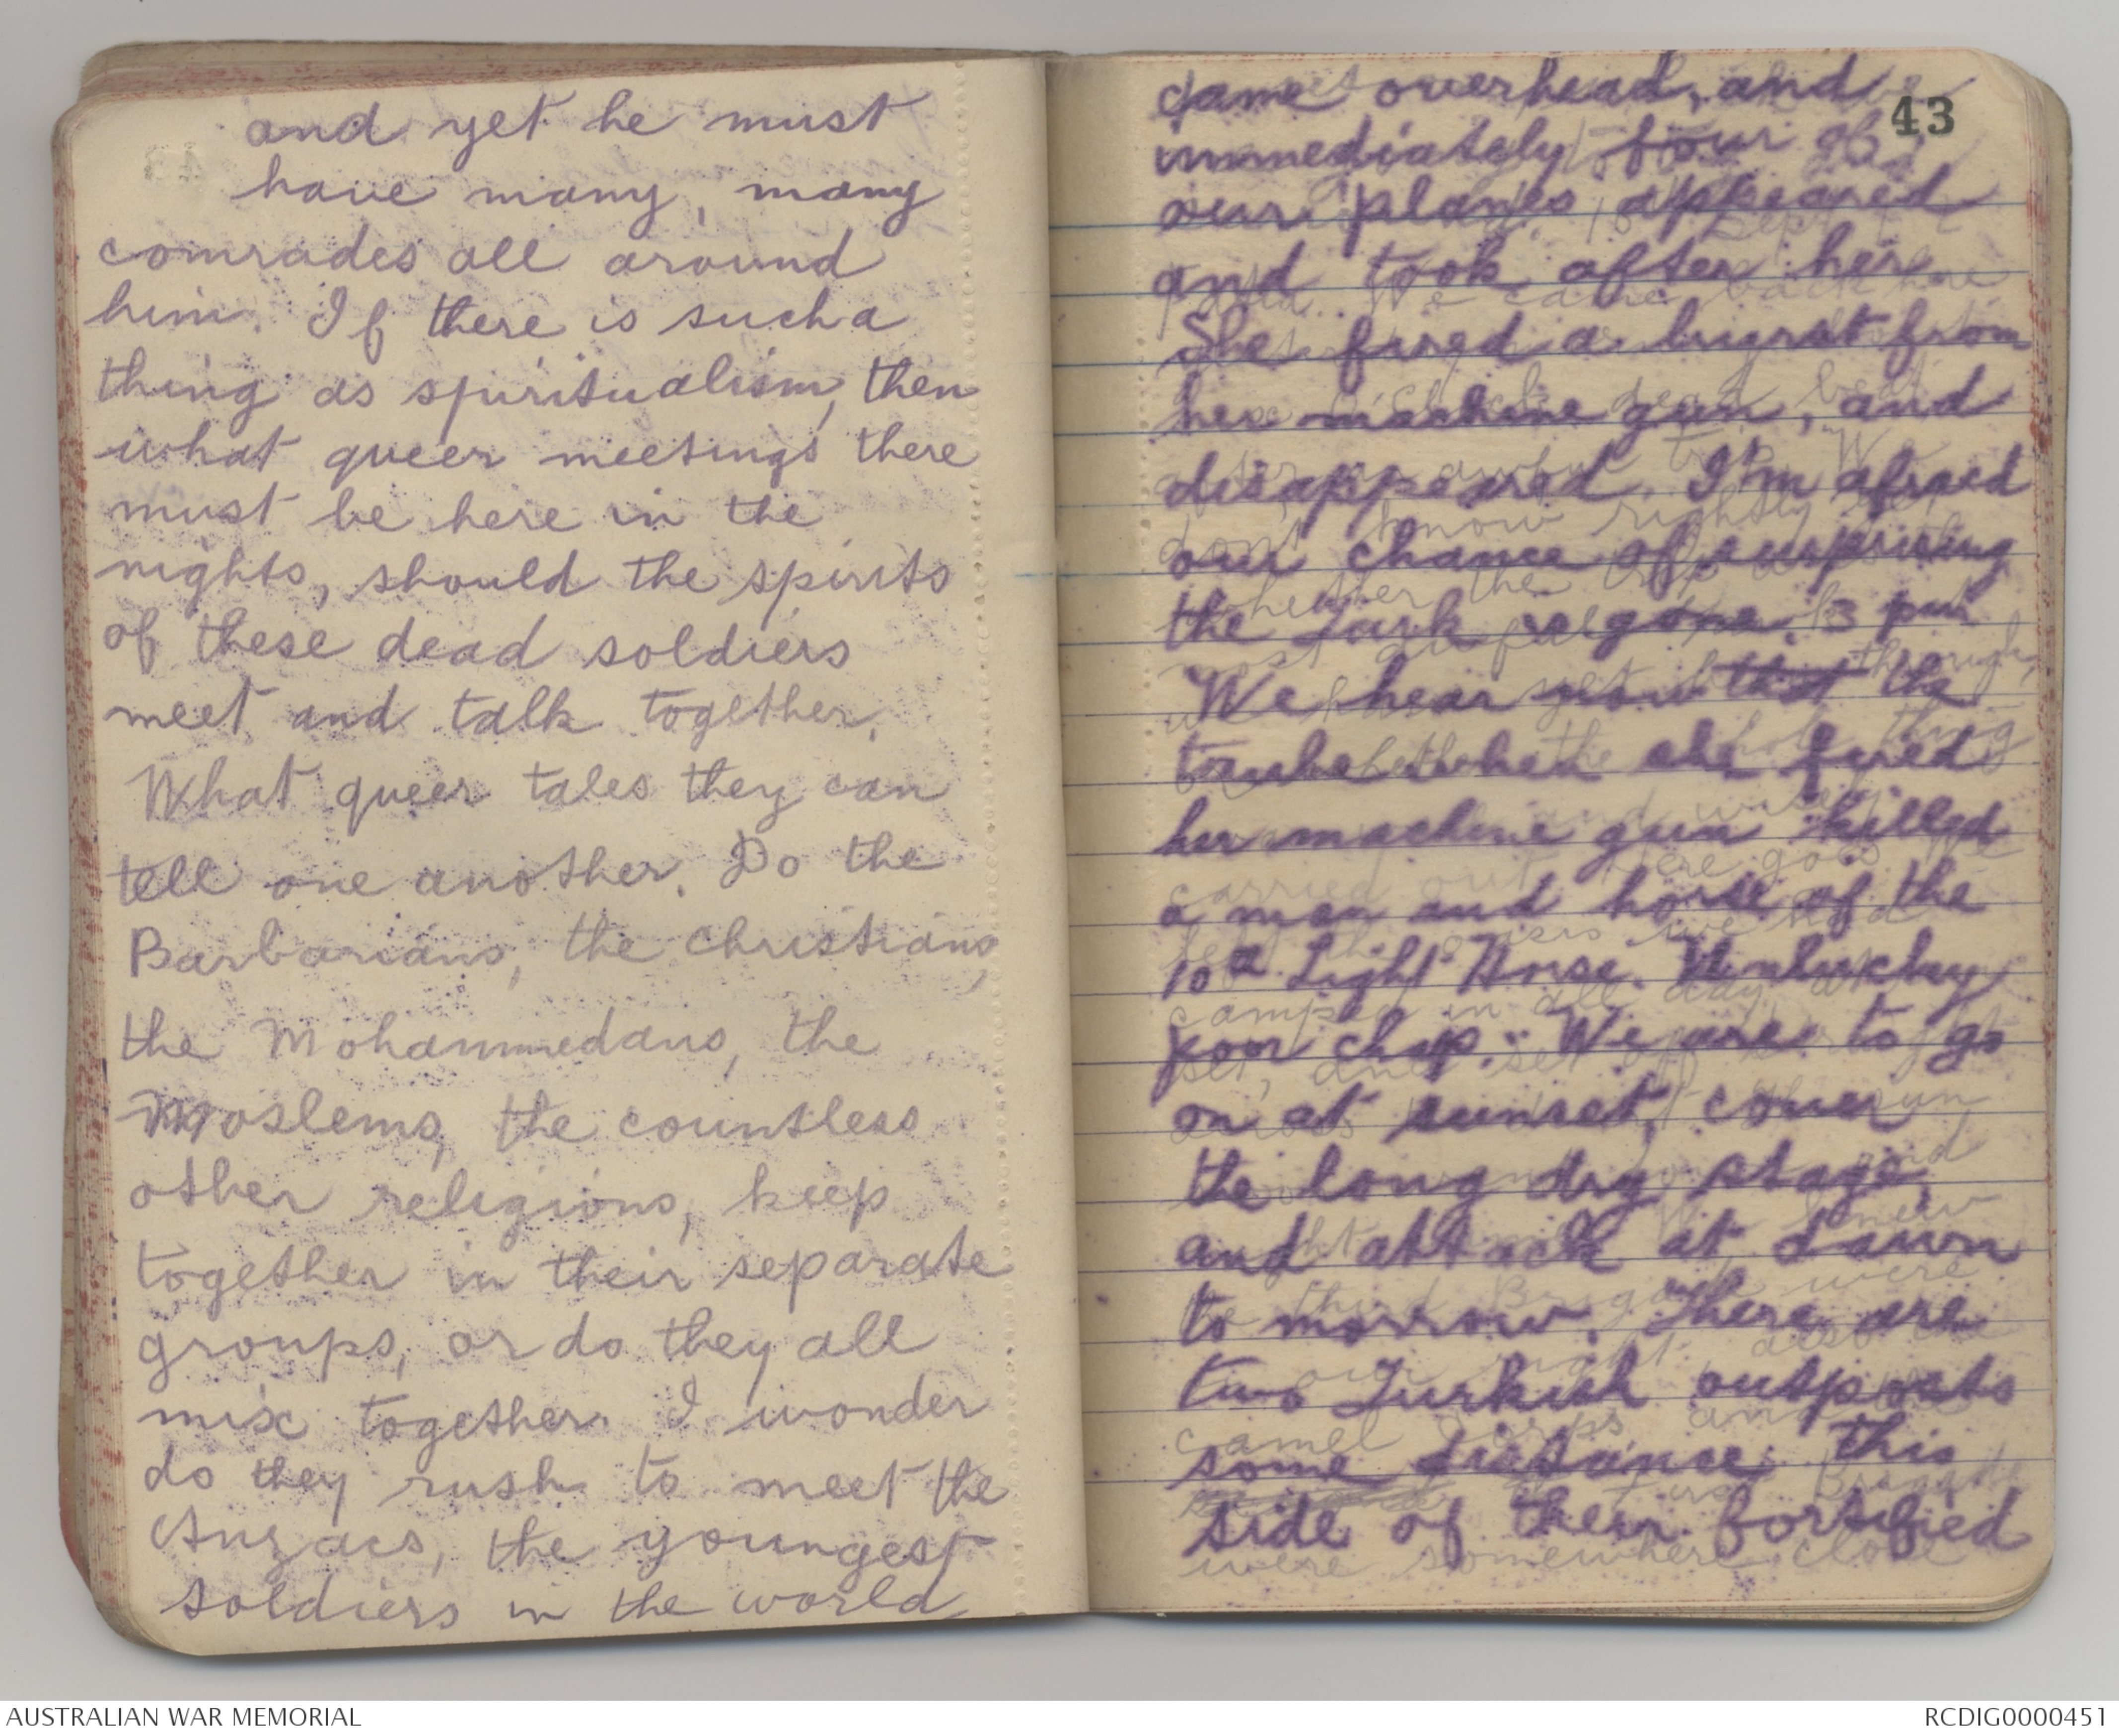 and yet he must
have many, many
comrades all around
him. If there is such a
thing as spiritualism, then
what queer meetings there
must be here in the
nights, should the spirits
of these dead soldiers
meet and talk together.
What queer tales they can
tell one another. Do the
Barbarians, the Christians,
the Mohammedans, the
Moslems, the countless
other religions, keep
together in their separate
groups, or do they all
mix together. I wonder
do they rush to meet the
Anzacs, the youngest
soldiers in the world
43
came overhead, and
immediately four of
our planes appeared
and took after her
She fired a burst from
her machine gun, and
disappeared. I'm afraid
our chance of surprising
the Turk is gone. 3 pm
We hear now that the
taube when she fired
her machine gun killed
a man and horse of the
10th Light Horse. Unlucky
poor chap. We are to go
on at sunset, cover
the long dry stage,
and attack at dawn
to morrow. There are
two Turkish outposts
some distance this
side of their fortified
AUSTRALIAN WAR MEMORIAL
RCDIG0000451